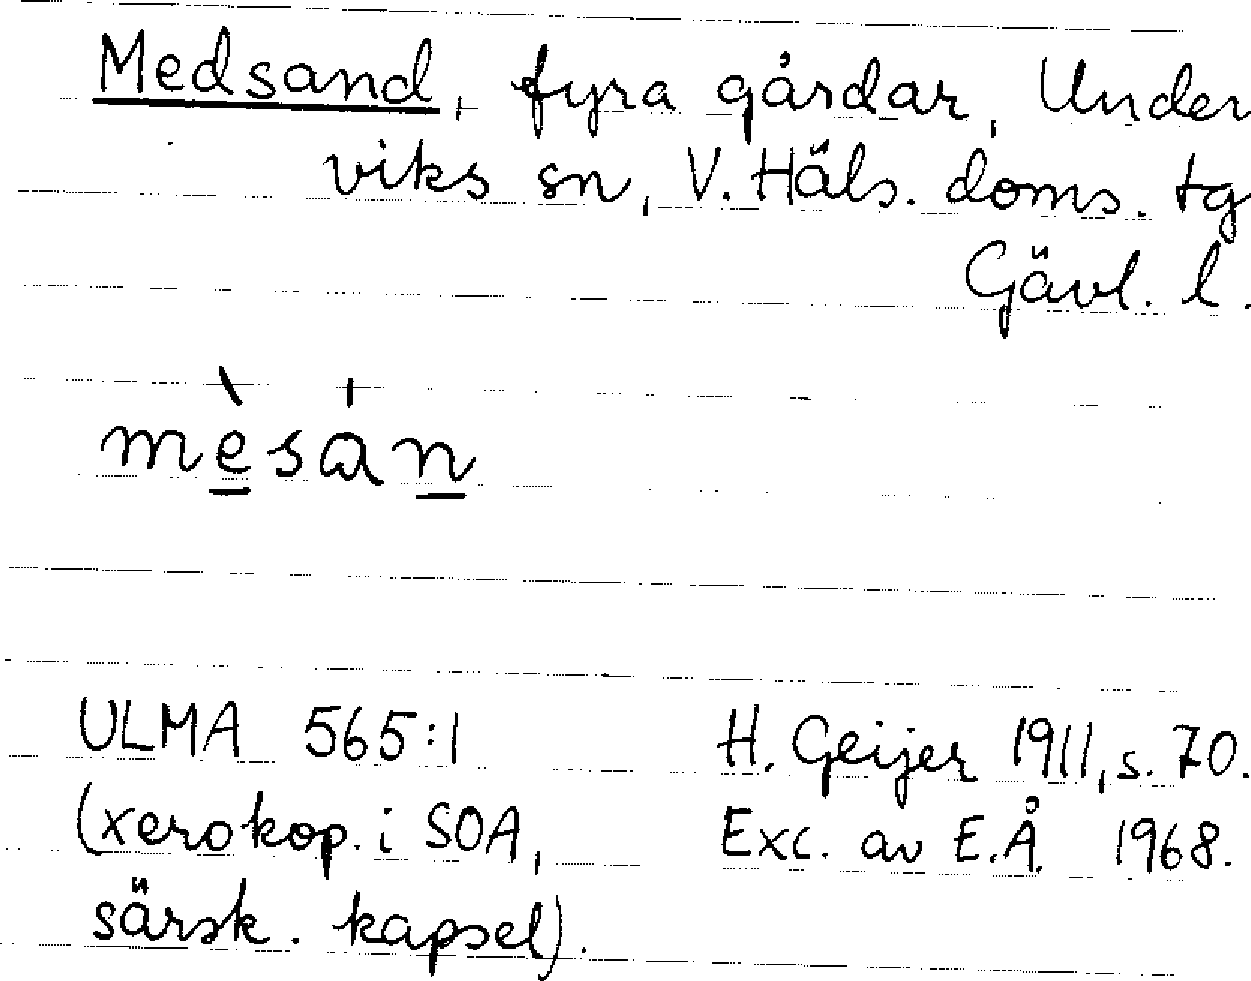 Medsand, fyra gårdar, Under
viks sn, V. Häls. doms. tg
Gävl. l.
mèsán
ULMA 565:1 H. Geijer 1911, s. 70.
(xerokop. i SOA, Exc. av E.Å. 1968.
särsk. kapsel).